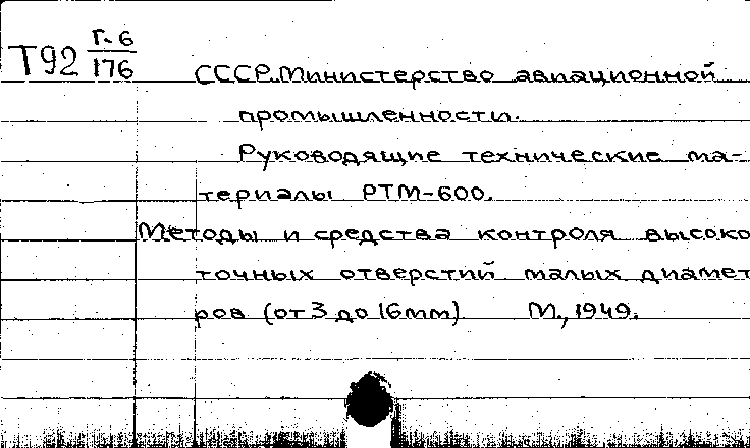 Т92 Г-6/176
СССР. Министерство авиационной
промышленности.
Руководящие технические ма-
териалы РТМ-600.
Методы и средства контроля высоко
точных отверстий малых диамет
ров (от 3 до 16мм) М., 1949.